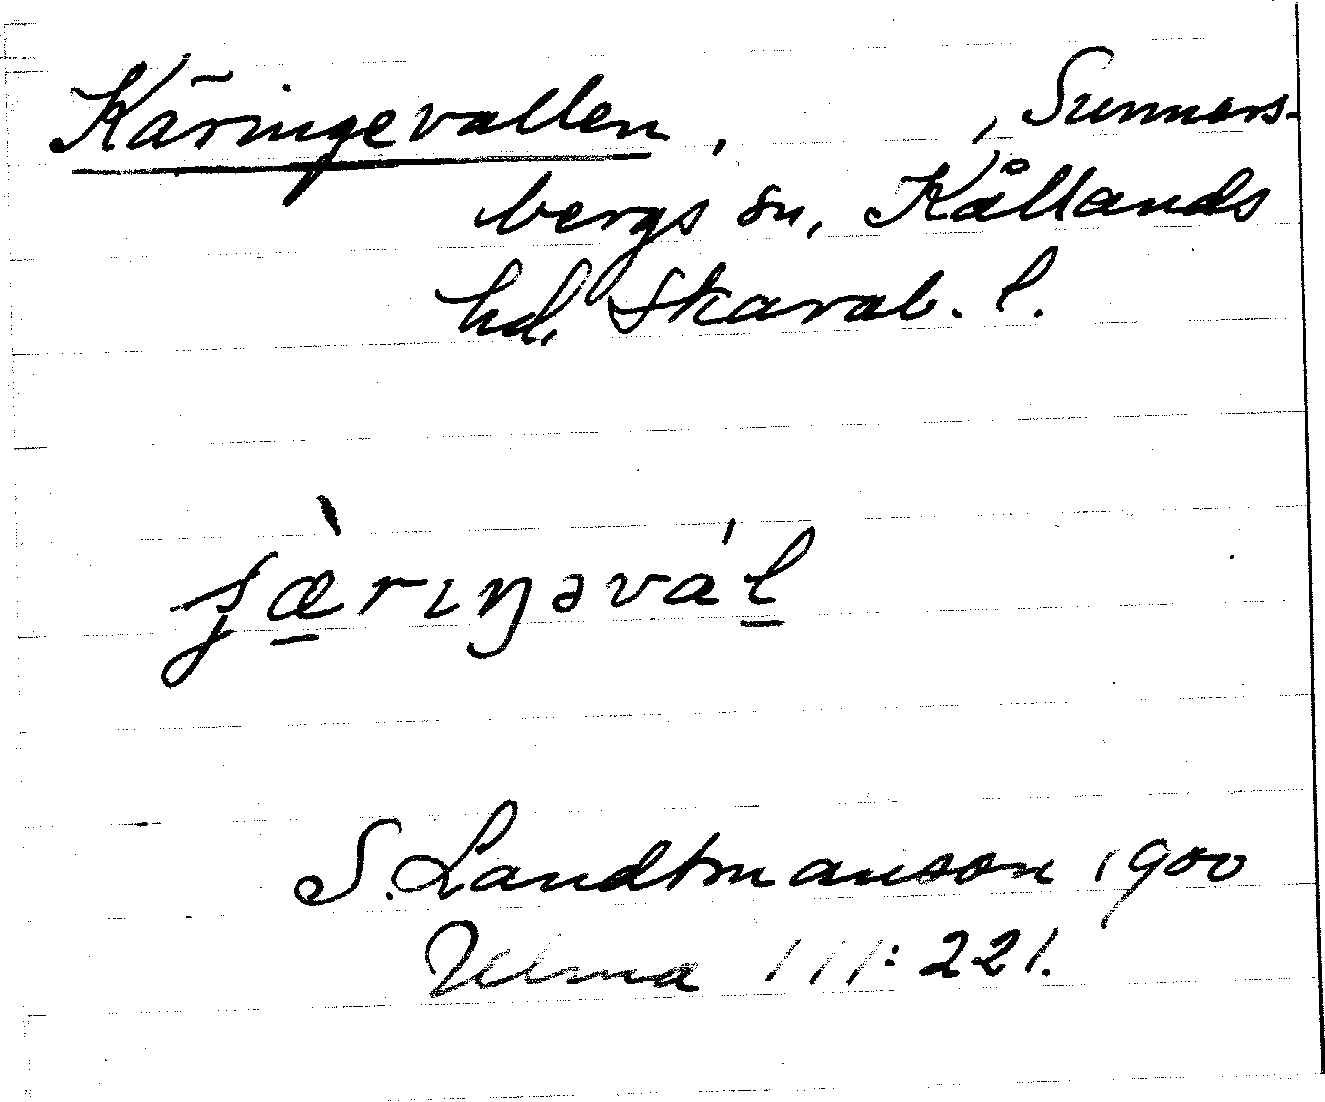 Käringevallen, , Sunners-
bergs sn, Kållands
hd. Skarab. l.
S. Landtmanson 1900
Ulma 111:221.